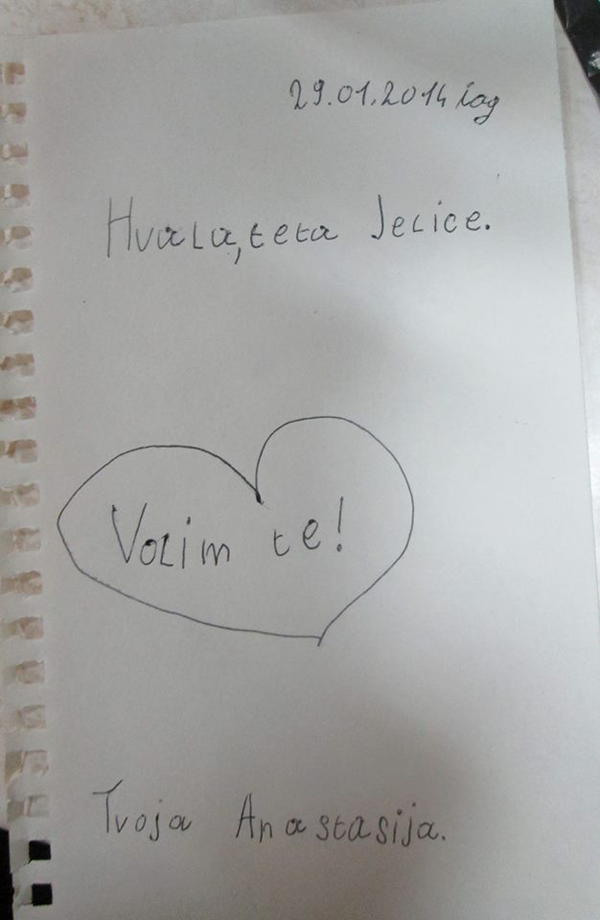 29.01.2014 Zag
Hvala, teta Jelice.
Volim te!
Tvoja Anastasija.